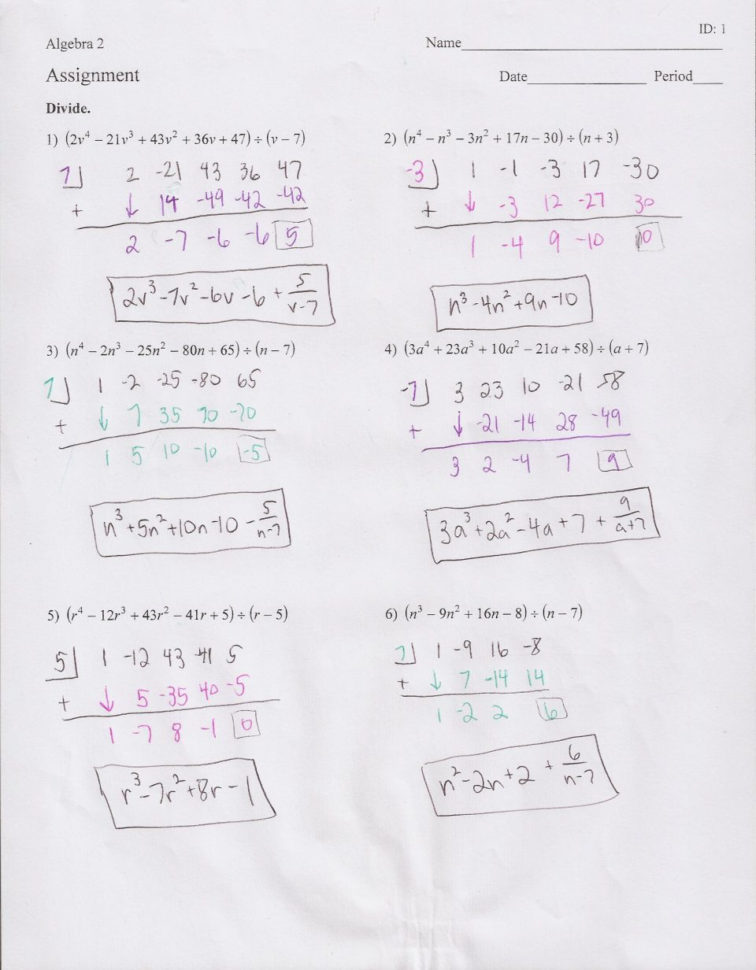 ID: 1
Algebra 2
Name
Assignment
Date Period
Divide.
1) (2v⁴ − 21v³ + 43v² + 36v + 47) ÷ (v − 7)
7 2 -21 43 36 47
+ ↓ 14 -49 -42 -42
2 -7 -6 -6 5
2v³-7v²-6v-6+5/(v-7)
2) (n⁴ − n³ − 3n² + 17n − 30) ÷ (n + 3)
-3 1 -1 -3 17 -30
+ ↓ -3 12 -27 30
1 -4 9 -10 0
n³-4n²+9n-10
3) (n⁴ − 2n³ − 25n² − 80n + 65) ÷ (n − 7)
7 1 -2 -25 -80 65
+ ↓ 7 35 70 -70
1 5 10 -10 -5
n³+5n²+10n-10-5/(n-7)
4) (3a⁴ + 23a³ + 10a² − 21a + 58) ÷ (a + 7)
-7 3 23 10 -21 58
+ ↓ -21 -14 28 -49
3 2 -4 7 9
3a³+2a²-4a+7+9/(a+7)
5) (r⁴ − 12r³ + 43r² − 41r + 5) ÷ (r − 5)
5 1 -12 43 -41 5
+ ↓ 5 -35 40 -5
1 -7 8 -1 0
r³-7r²+8r-1
6) (n³ − 9n² + 16n − 8) ÷ (n − 7)
7 1 -9 16 -8
+ ↓ 7 -14 14
1 -2 2 6
n²-2n+2+6/(n-7)